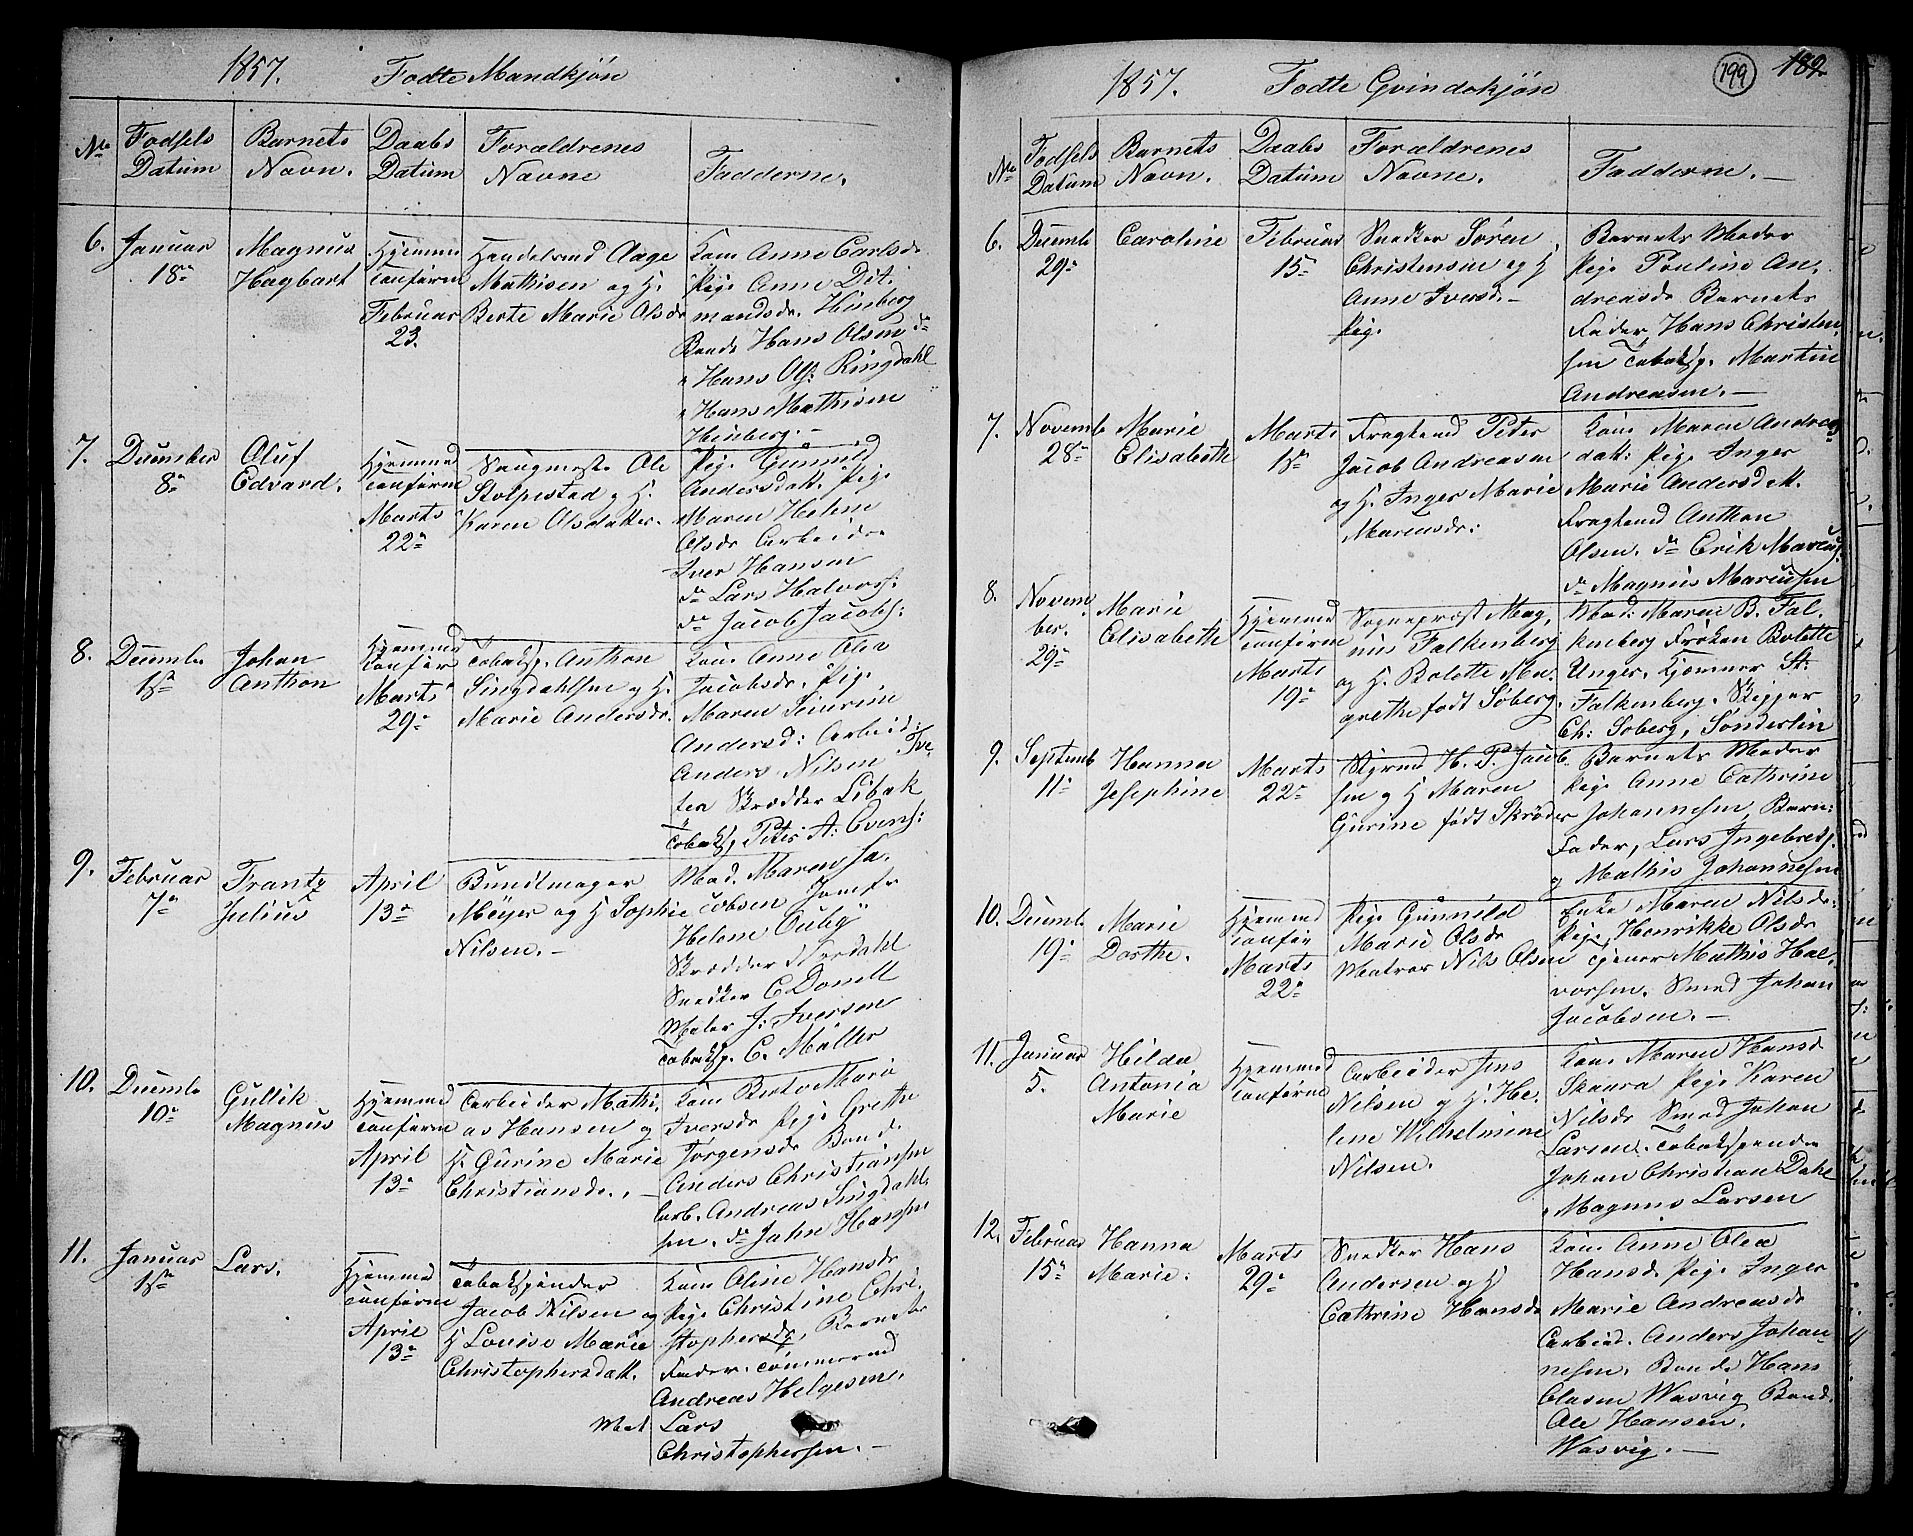 1857. Fødte Mandkjøn
No
Fødsels Datum
Barnets Navn.
Daabs Datum
Forældrenes Navne
Fadderne.
6.
Januar
18de
Magnus
Hagbart
Hjemmed
Februar
23.
Handelsmd Aage
Mathisen og H.
Berte Marie Olsdr
Kone Anne Carlsdr
Pige Anne Dit-
mandsdr. Hinberg
Bonde Hans Olsen do
" Hans Ols. Ringdahl
" Hans Mathisen
Hinberg.—
7.
December
8de
Oluf
Edvard.
Hjemmed
Marts
22de
Saugmester Ole
Stolpestad og H.
Karen Olsdatter.
Pige Gunnild
Andersdatt. Pige
Maren Helene
Olsdr Arbeider
Iver Hansen
do Lars Halvors:
do Jacob Jacobs:
8.
Decembr
1ste
Johan
Anthon
Hjemmed
Marts
29de
Tobaksp. Anthon
Singdahlsen og H.
Marie Andersdr.
Kone Anne Olea
Jacobsdr. Pige
Maren Severine
Andersd: Arbeid:
Anders Nilsen Tve-
ten Skrædder Libak
Tobaksp. Peter A. Evens:
9.
Februar
7de
Frantz
Julius
April
13de
Bundtmager
Meyer og H Sophie
Nilsen.—
Mad. Maren Ja-
cobsen Jomfr
Helene Ouby
Skrædder Nordahl
Snedker C Donell
Maler J. Iversen
Tobaksp. C. Møller
10.
Decembr
10de
Gullik
Magnus
Hjemmed
April
13de
Arbeider Mathi-
as Hansen og
H. Gurine Marie
Christiansdr. —
Kone Berte Marie
Iversdr Pige Grethe
Jørgensdr Bonde
Anders Christiansen
Arb. Andreas Singdahl-
sen. do John Hansen
11.
Januar
1ste
Lars.
Hjemmed
April
13de
Tobakspinder
Jacob Nilsen og
H Louise Marie
Christophersdatt.
Kone Oline Hansdr
Pige Christine Chri-
stophersdr, Barnets
Fader. Tømmermd
Andreas Helgesen.
Mat. Lars
Christophersen.—
1857. Fødte Qvindekjøn
199 189
No
Fødsels Datum
Barnets Navn.
Daabs Datum
Forældrenes Navne.
Fadderne.—
6.
Decembr
29de
Caroline
Februar
15de
Snedker Søren
Christensen og H
Anne Iversd.—
Pig.
Barnets Moder
Pige Pauline An-
dreasdr Barnets
Fader, Hans Christen-
sen Tobaksp. Martin
Andreasen.—
7.
Novembr
28de
Marie
Elisabeth
Marts
1ste
Fragtemd Peter
Jacob Andreasen
og H. Inger Marie
Marcusdr:
Kone Maren Andreas-
datt: Pige Inger
Marie Andersdatt.
Fragtemd Anthon
Olsen. do Erik Marcus:
do Magnus Marcussen
8.
Novem-
ber.
29de
Marie
Elisabeth
Hjemmed
Marts
19de
Sogneprest Mag-
nus Falkenberg
og H. Bolette Ma-
grethe født Søberg.
Mad: Maren B. Fal-
kenberg Frøken Bolette
Unger. Kjemner St:
Falkenberg. Skipper
Ch: Søberg, Sønderlin
9.
Septemb
11de
Hanna
Josephine
Marts
22de
Styrmd H. P. Jacob-
sen og H Maren
Gurine født Skrøder
Barnets Moder
Pige Anne Cathrine
Johannesen, Barn:
Fader, Lars Ingebrets:
og Mathis Johannesen
10.
Decembr
19de
Marie
Dorthe.
Hjemmed
Marts
22de
Pige Gunnild
Marie Olsdr
Matros Nils Olsen
Enke Maren Nilsdr:
Pige Henrikke Olsdr
Tjener Mathis Hal-
vorsen. Smed Johan
Jacobsen.—
11.
Januar
5.
Hilda
Antonia
Marie
Hjemmed
Arbeider Jens
Nilsen og H. He-
lene Wilhelmine
Nilsen.
Kone Maren Hansd
Skaara Pige Karen
Nilsdr Smed Johan
Larsen. Tobakspinder
Johan Christian Dahl
" Magnus Larsen
12.
Februar
15de
Hanna
Marie.
Marts
29de
Snedker Hans
Andersen og H
Cathrine Hansdr
Kone Anne Olea
Hansdr Pige Inger
Marie Andreasdr
Arbeid. Anders Johan-
nesen. Bonde Hans
Olasen Wasvig Bond.
Ole Hansen.
Wasvig.—